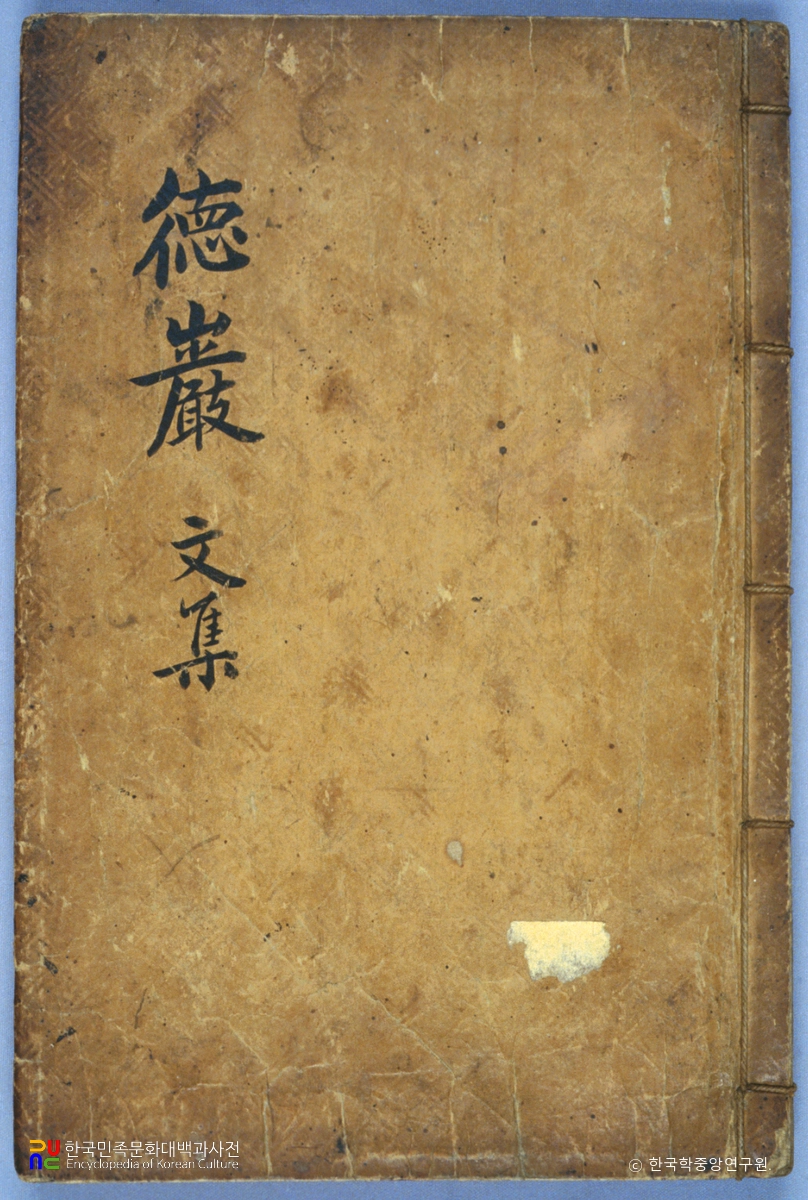 德巖
文集
한국민족문화대백과사전
Encyclopedia of Korean Culture
© 한국학중앙연구원